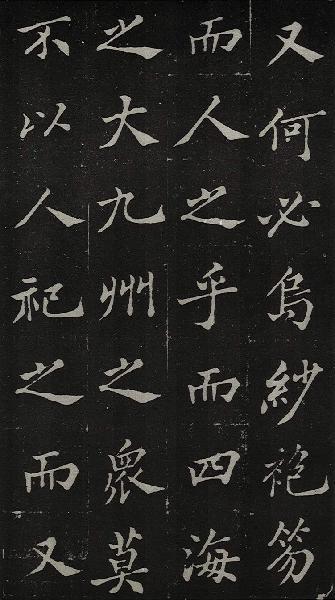 又何必烏紗袍笏
而人之乎而四海
之大九州之眾莫
不以人祀之而又